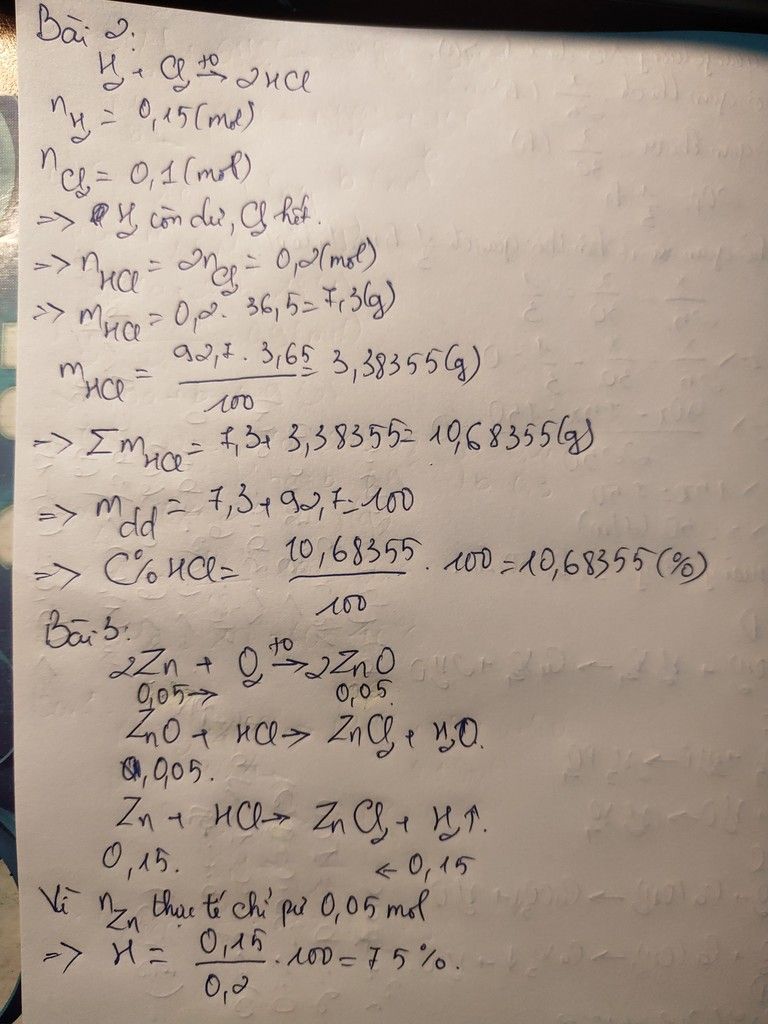 Bài 2:
H₂ + Cl₂ →(t°) 2HCl
n H₂ = 0,15 (mol)
n Cl₂ = 0,1 (mol)
=> H₂ còn dư, Cl₂ hết.
=> n HCl = 2n Cl₂ = 0,2 (mol)
=> m HCl = 0,2 . 36,5 = 7,3 (g)
m HCl = 92,7 . 3,65 / 100 = 3,38355 (g)
=> Σ m HCl = 7,3 + 3,38355 = 10,68355 (g)
=> m dd = 7,3 + 92,7 = 100
=> C% HCl = 10,68355 / 100 . 100 = 10,68355 (%)
Bài 3:
2Zn + O₂ →(t°) 2ZnO
0,05 → 0,05
ZnO + HCl → ZnCl₂ + H₂O.
0,05.
Zn + HCl → ZnCl₂ + H₂↑.
0,15. ← 0,15
Vì n Zn thực tế chỉ pư 0,05 mol
=> H = 0,15 / 0,2 . 100 = 75%.